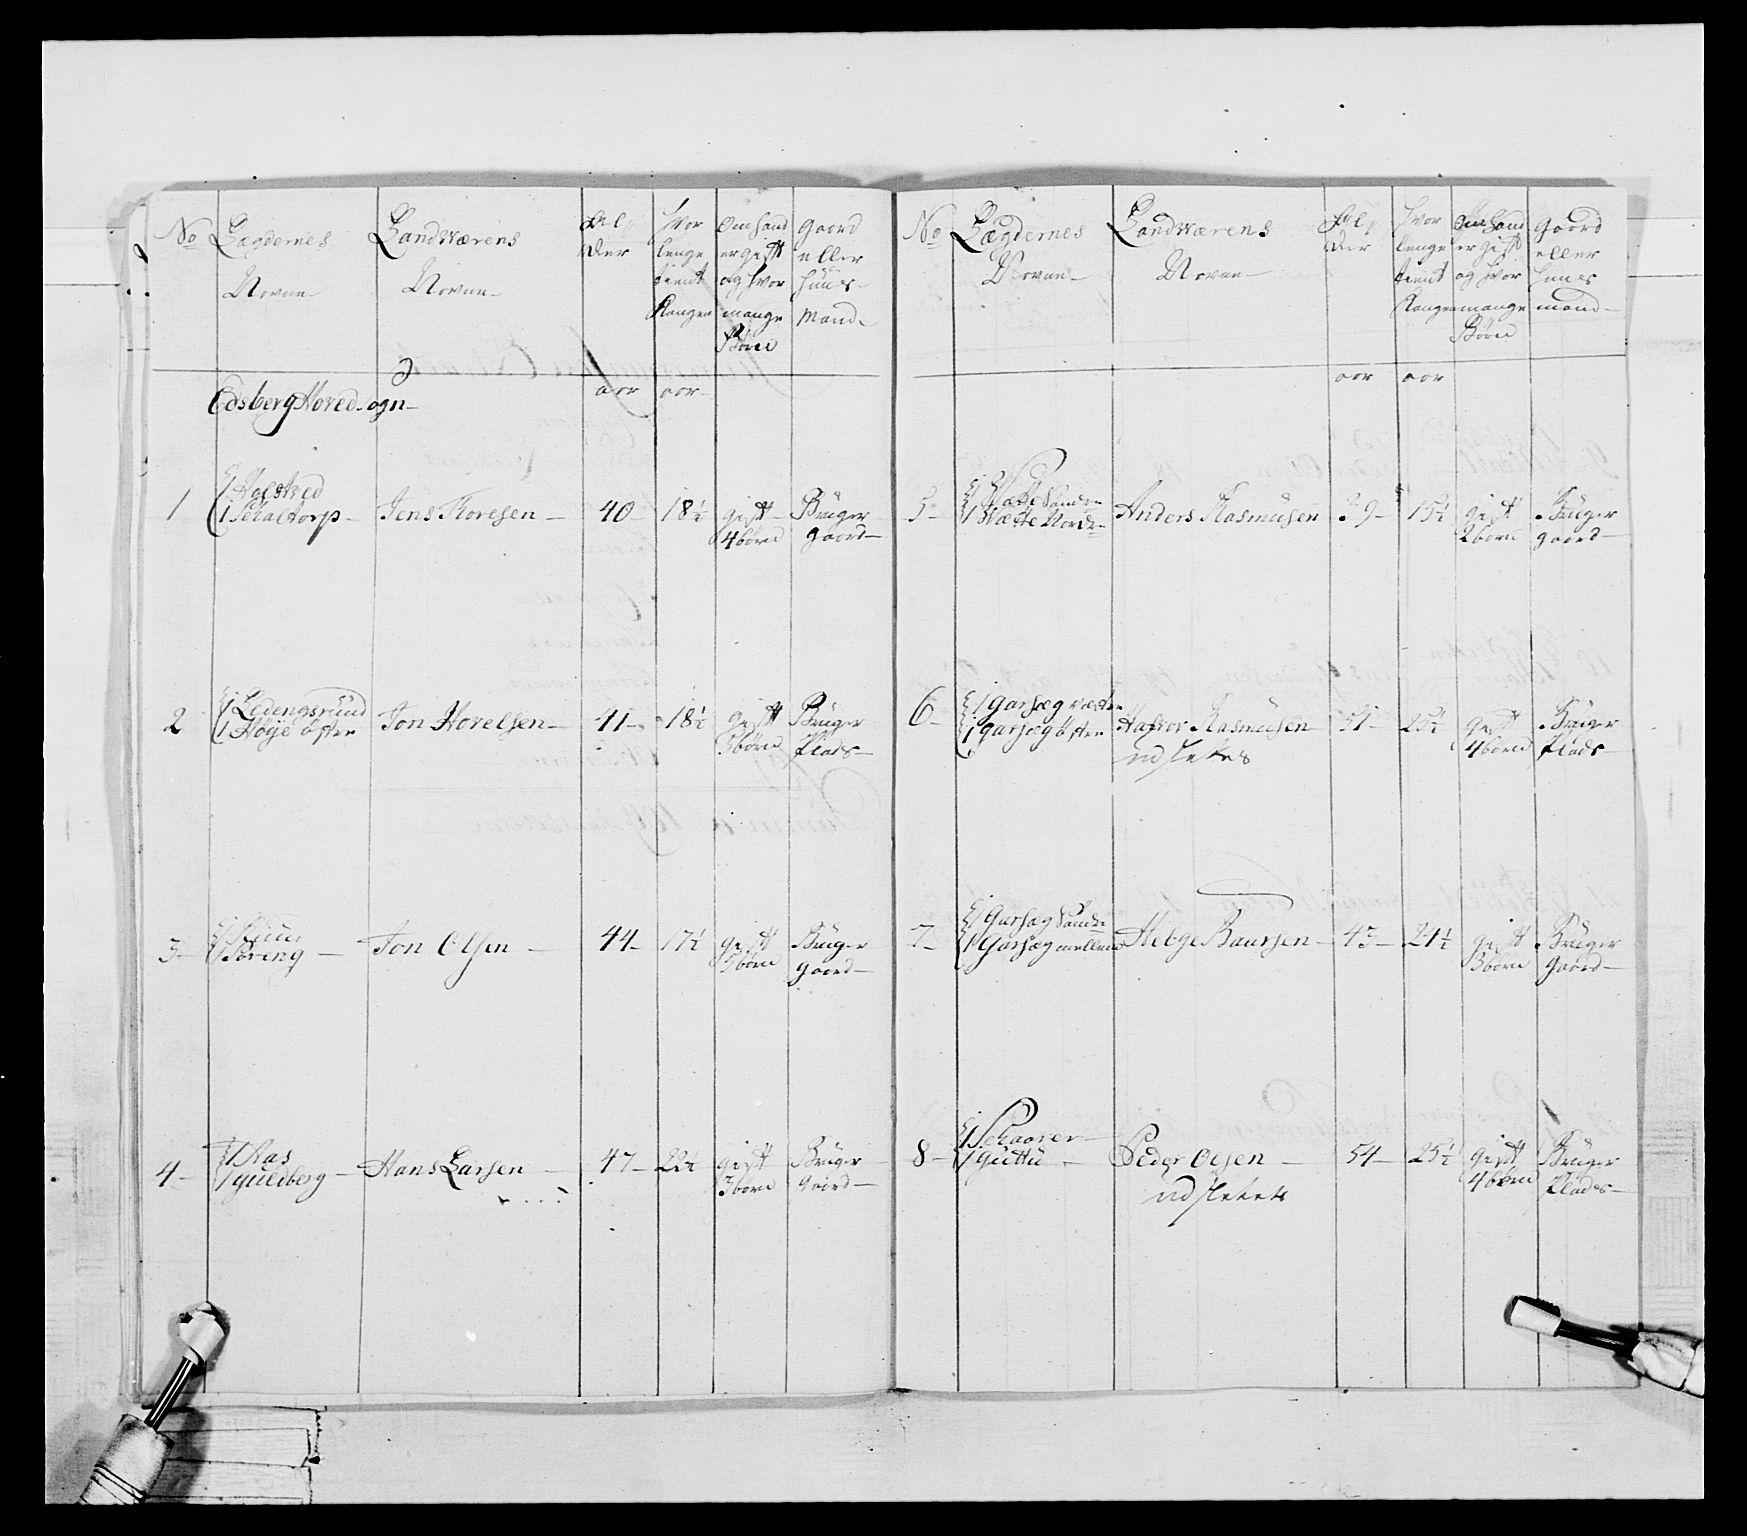 No Lægdernes Navne Landværens Navne Alder Hvor lenge tient Kongen Om hand er gift og hvor mange Børn Gaard eller Huus Mand
Edsberg Hovedsogn aar aar
1 Holstved Schaltorp Jens Toresen 40 18½ gift 4 børn Bruger gaard
2 Ledengsrund Høye Østre Jon Hovelsen 41 18½ gift 3 børn Bruger Plads
3 Toreng Jon Olsen 44 17½ gift 5 børn Bruger gaard
4 Aas guldberg Hans Larsen 47 22½ gift 3 børn Bruger Gaard
No Lægdernes Navne Landværens Navne Alder Hvor lenge tient Kongen Om hand er gift og Hvor mange Børn Gaard eller Huus mand
aar aar
5 Søndre Nordre Anders Rasmusen 39 15½ gift 2 børn Bruger gaard
6 garseg Vestre garseg Østre Halvor Rasmusen 51 25½ gift 4 børn Bruger Plads
udslettes
7 Garseg Søndre Garseg mellem Helge Baursen 43 24½ gift 3 børn Bruger Gaard
8 Schaarer guttu Peder Olsen 54 25½ gift 4 børn Bruger Plads
udslettes